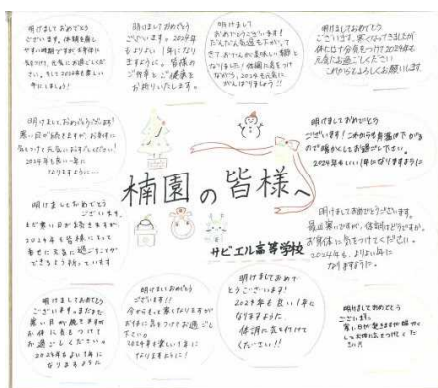 明けましておめでとう
ございます。体調を崩し
やすい時期ですがお身体に
気をつけて、元気にお過ごしくださ
い。そして2024年も楽しい
年にしましょう!
明けましておめでとう
ございます。2024年
もよりよい1年になり
ますように。皆様の
ご多幸とご健康を
お祈りいたします。
明けまして
おめでとうございます!
だんだん気温も下がって
きて、おでんが美味しい時期と
なりました!体調に気をつけ
ながら、2024年も元気に
がんばりましょう!!
明けましておめでとう
ございます。寒くなってきましたが
体には十分気をつけて2024年も
元気にお過ごしください
これからもよろしくお願いします
明けましておめでとうございます!
寒い日が続きますが、お身体に
気をつけて元気におすごしください!
2024年も良い一年に
なりますように…
明けましておめでとう
ございます!これからも身体
暖かくしてお過ごし下さい。
2024年もいい1年になりますように
楠園の皆様へ
サビエル高等学校
明けましておめでとう
ございます。
まだ寒い日が続きますが
2024年も皆様にとって
幸せに元気に過ごすことが
できるよう祈っています
明けましておめでとうございます。
最近寒いですが、体調はどうですか。
お身体に気をつけてください。
2024年も、よりよい年に
なりますように。
明けましておめでとう
ございます。まだまだ
寒い日が続きますが
お体に気をつけて
お過ごしください。
2024年も良い1年に
なりますように
明けましておめでとう
ございます!!
今からもっと寒くなりますが
お体に気をつけてお過ごし
下さい。
2024年も楽しい1年に
なりますように!
明けましておめで
とうございます!
2024年も良い1年に
なりますように
体調に気を付けて
ください!!
明けましておめでとう
ございます。
寒い日が続きますが暖かく
してお体に気をつけてくだ
さい